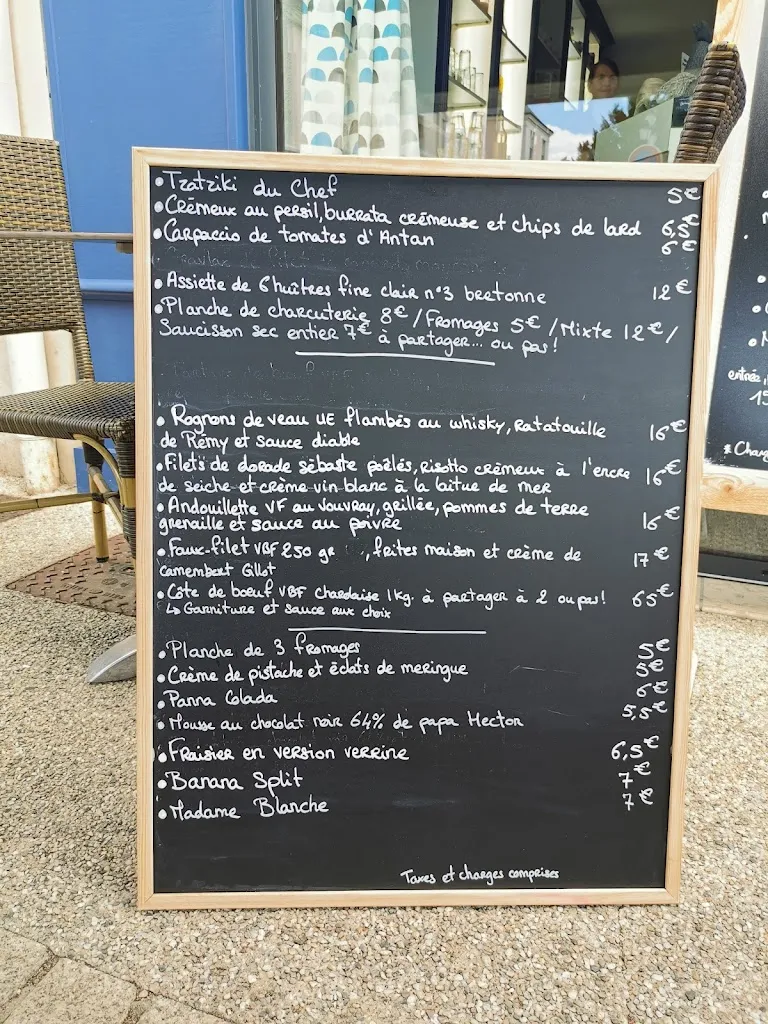 • Tzatziki du Chef 5€
• Crémeux au persil, burrata crémeuse et chips de lard 6,5€
• Carpaccio de tomates d'Antan 6€
• Assiette de 6 huîtres fine clair n°3 bretonne 12€
• Planche de charcuterie 8€ / Fromages 5€ / Mixte 12€ /
Saucisson sec entier 7€ à partager... ou pas!
• Rognons de veau UE flambés au whisky, Ratatouille 16€
de Rémy et sauce diable
• Filets de dorade sébaste poêlés, risotto crémeux à l'encre 16€
de seiche et crème vin blanc à la laitue de mer
• Andouillette VF au Vouvray, grillée, pommes de terre 16€
grenaille et sauce au poivre
• Faux-filet VBF 250 gr , frites maison et crème de 17€
camembert Gillot
• Côte de bœuf VBF Charolaise 1kg. à partager à 2 ou pas! 65€
↳ Garniture et sauce aux choix
• Planche de 3 fromages 5€
• Crème de pistache et éclats de meringue 5€
• Panna Colada 6€
• Mousse au chocolat noir 64% de papa Hector 5,5€
• Fraisier en version verrine 6,5€
• Banana Split 7€
• Madame Blanche 7€
Taxes et charges comprises
entrée,